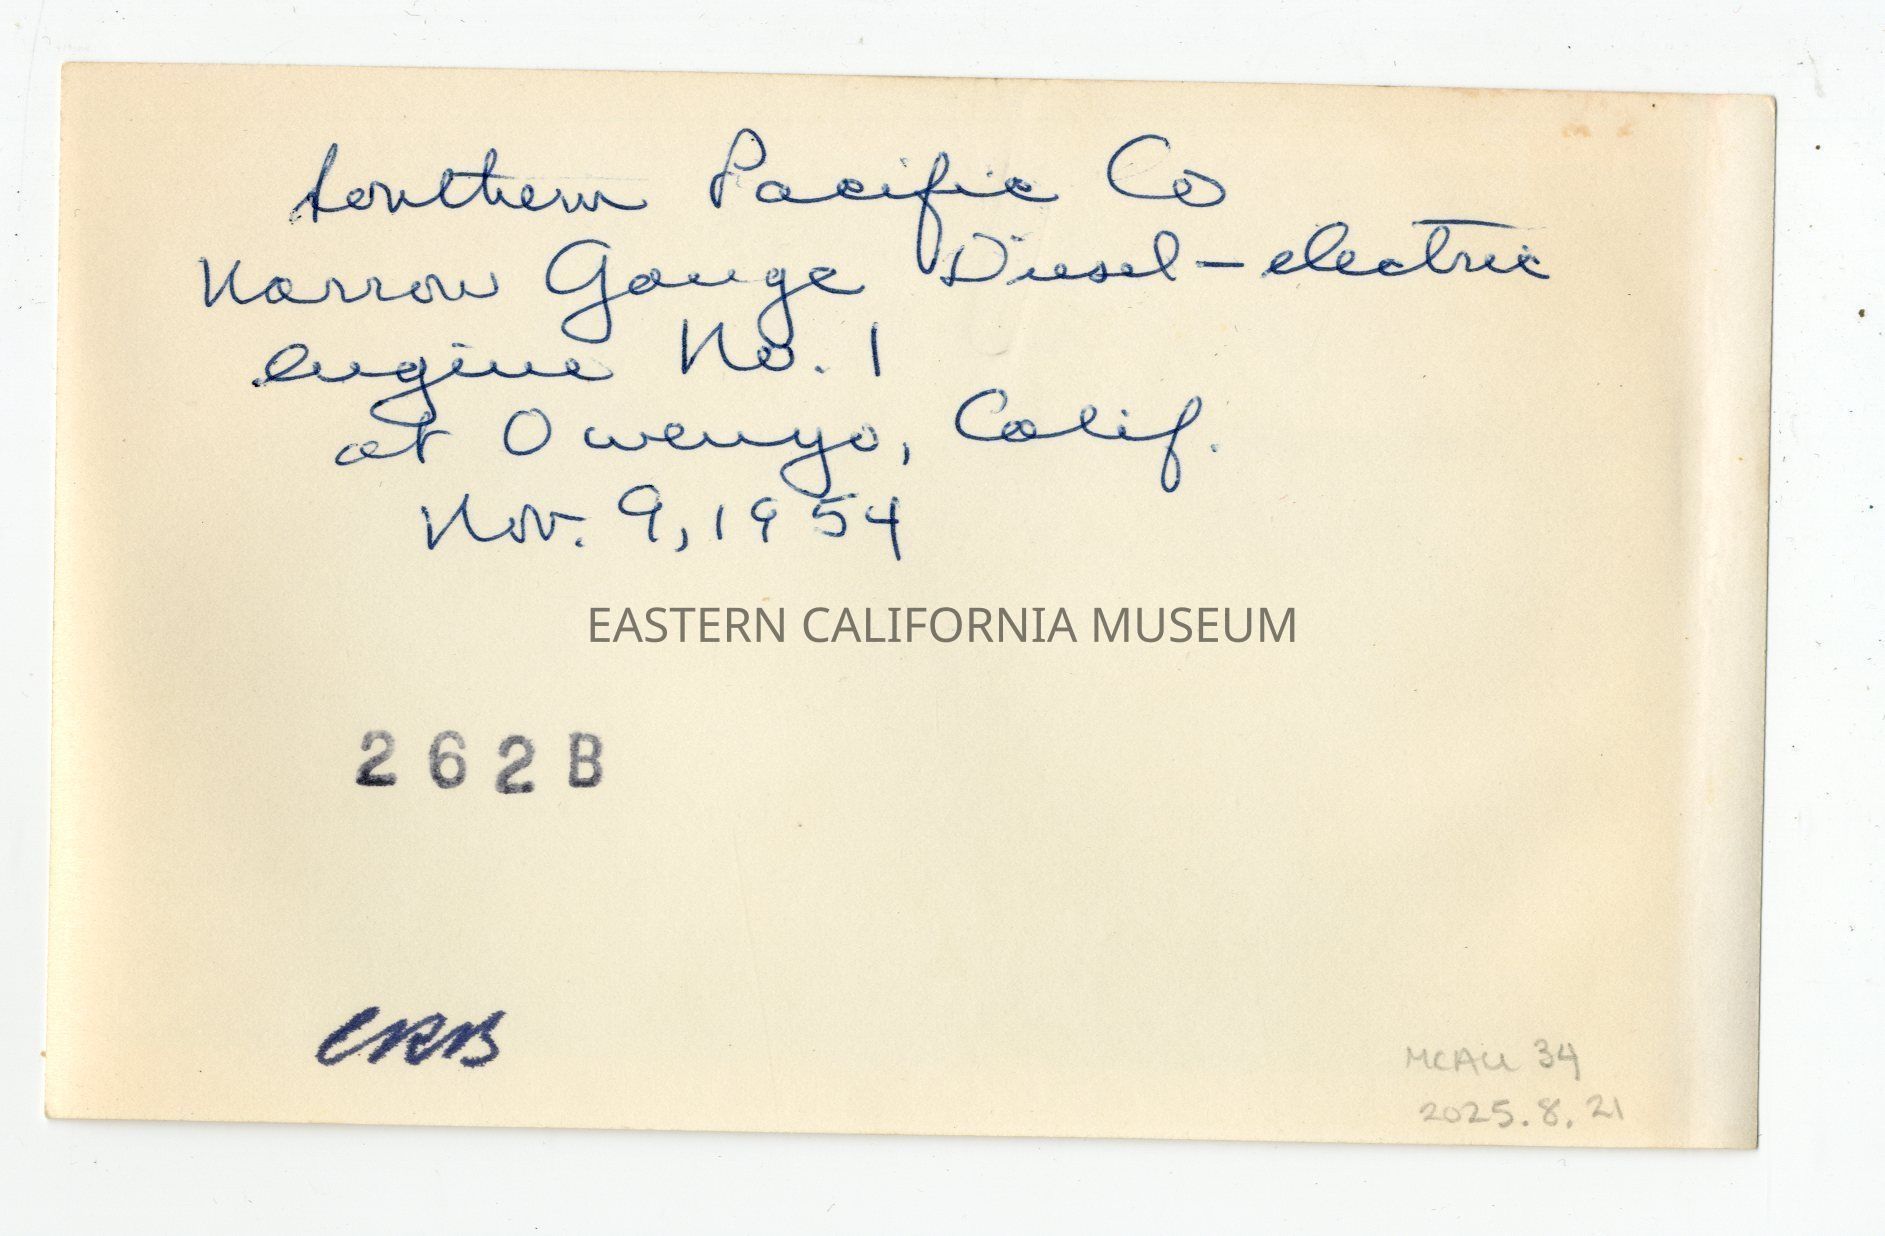 Southern Pacific Co
Narrow Gauge Diesel-electric
engine No. 1
at Owenyo, Calif.
Nov. 9, 1954
EASTERN CALIFORNIA MUSEUM
262B
CRB
MCAU 34
2025.8.21